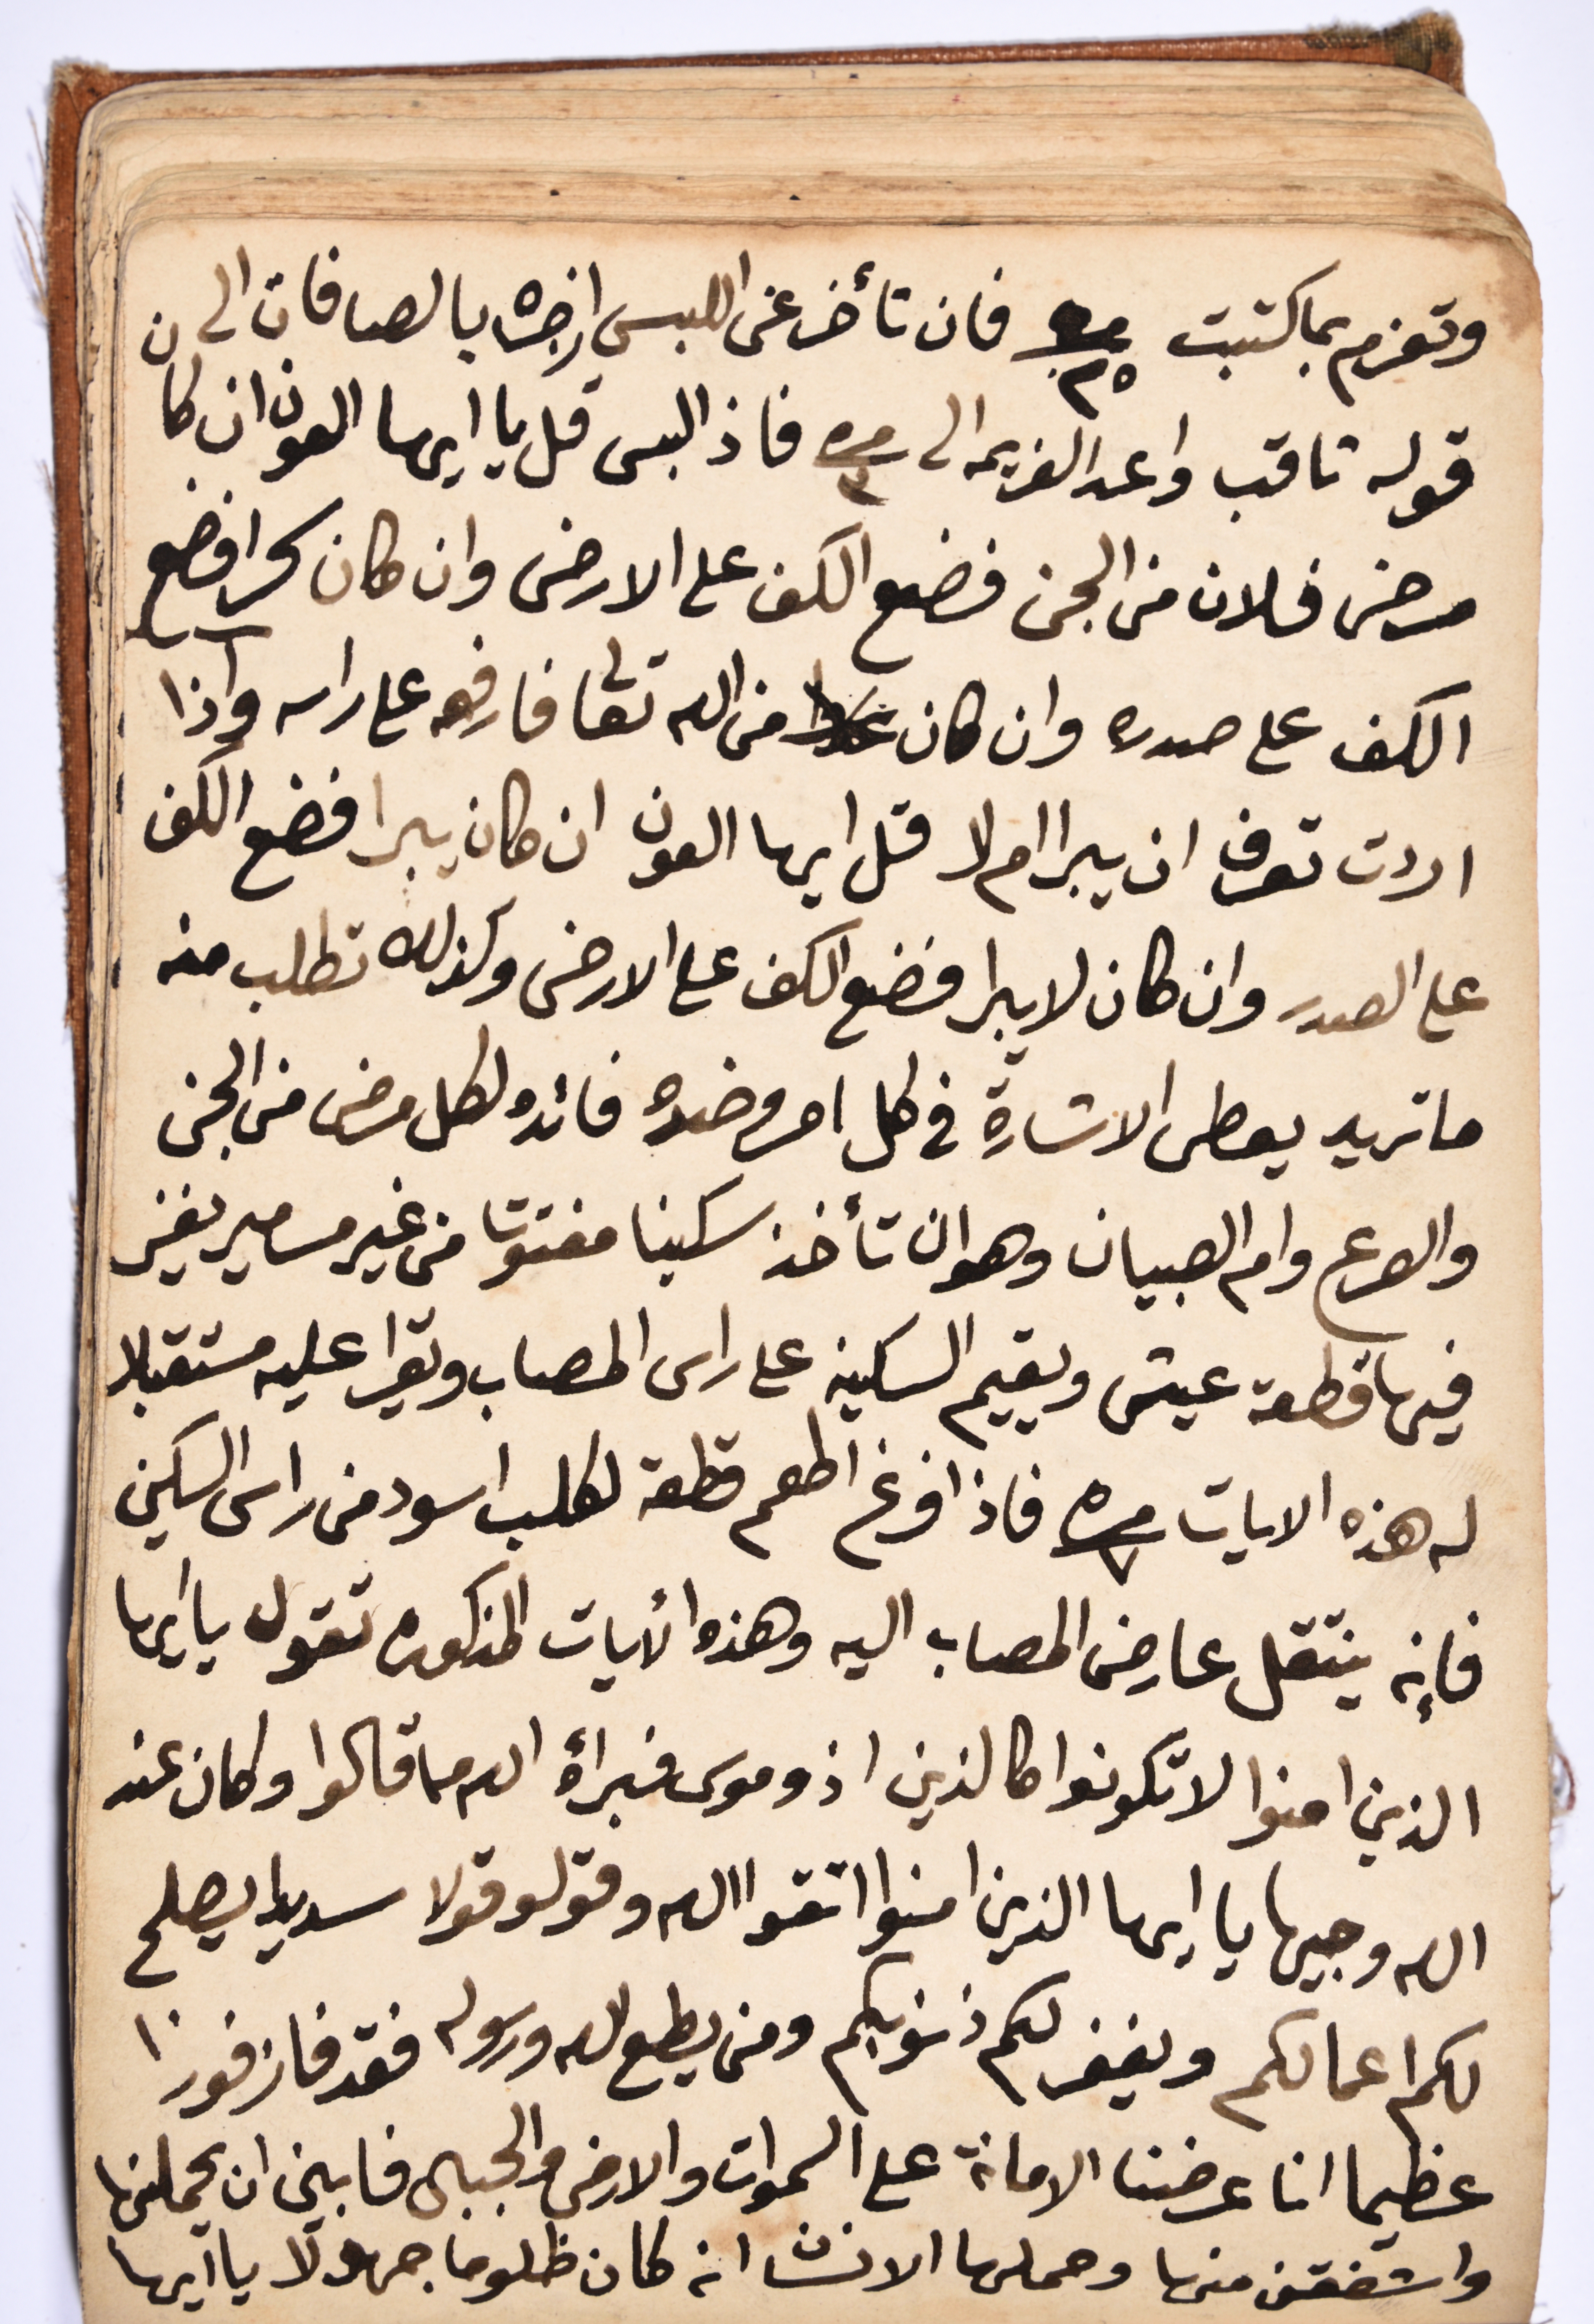 وتعزم بما كتبت مره ٢٥ فان تأخر عن اللبس ازجره بالصافات الى ن
قوله ثاقب واعد العزيمه الى مره ٣ فاذ البس قل يا ايها العون ان كا
مرض فلان من الجن فضع الكف على الارض وان كان سحرا فضع
الكف على صدره وان كان من الله تعالى فارفعه على راسه واذا
اردت تعرف ان يبرا ام لا قل ايها العون ان كان يبرا فضع الكف
على الصدر وان كان لا يبرا فضع الكف على الارض وكذلك تطلب منه
ما تريد يعطى الاشارة في كل امر وضده فائده لكل مرض من الجن
والصرع وام الصبيان وهو ان تأخذ سكينا مفتوتا من غير مسامير يغز
فيها قطعة عيش ويقيم السكينه على راس المصاب ويقرا عليه مستقبلا
له هذه الايات مره ٧ فاذا فرغ اطعم قطعة لكلب اسود من راس السكين
فإنه ينتقل عارض المصاب اليه وهذه الأيات المذكوره تقول يا أيها
الذين امنوا لا تكونوا كالذين اذوموسى فبرأه الله مما قالوا وكان عند
الله وجيها يا ايها الذين امنوا اتقوا الله وقولو قولا سديدا يصلح
لكم اعمالكم ويغفر لكم ذنوبكم ومن يطع الله ورسوله فقد فاز فوزا
عظيما انا عرضنا الامانة على السموات والارض والجبال فابين ان يحملنها
واشفقن منها وحملها الانسان انه كان ظلوما جهولا يا أيها